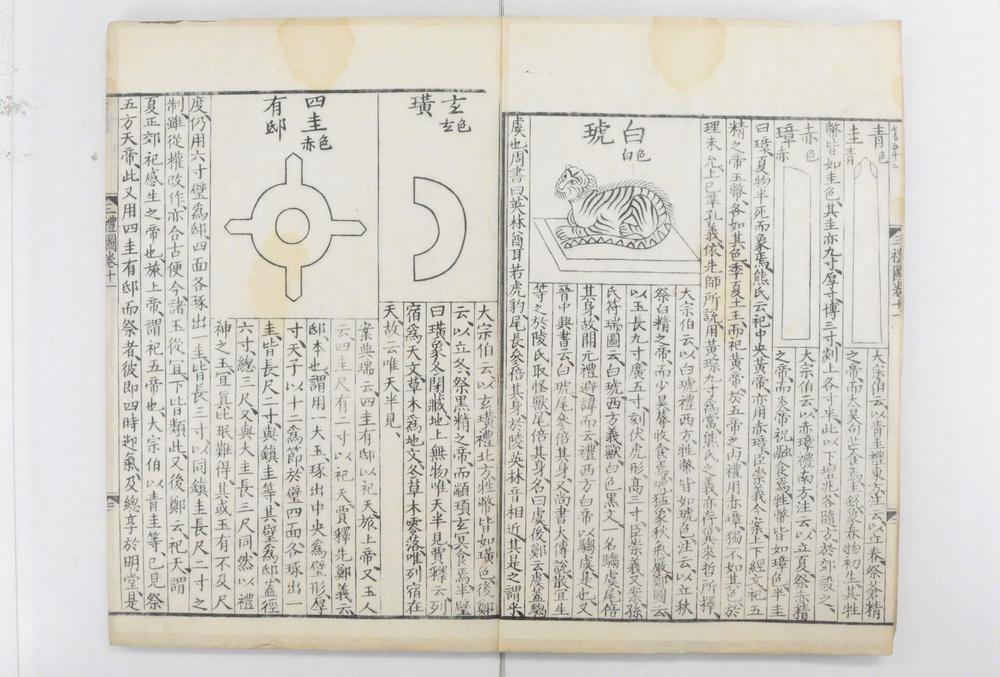 青色
圭青
大宗伯云以青圭禮東方注云以立春祭蒼精
之帝而太昊句芒食焉圭銳象春物初生其牲
幣皆如圭色其圭亦九寸厚寸博三寸剡上各寸半此以下壇兆各隨方於郊設之
赤色
璋赤
大宗伯云以赤璋禮南方注云以立夏祭赤精
之帝而炎帝祝融食焉牲幣皆如璋色半圭
曰璋夏物半死而象焉熊氏云祀中央黃帝亦用赤璋臣崇義今案上下經文祀五
精之帝玉幣各如其色季夏土王而祀黃帝於五帝之內禮用赤璋獨不如其色於
理未允上已準孔義依先師所說用黃琮九寸為當熊氏之義亦存冀來哲所擇
白
琥
白色
大宗伯云以白琥禮西方牲幣皆如琥色注云以立秋
祭白精之帝而少昊蓐收食焉琥猛象秋氣嚴鄭圖云
以玉長九寸廣五寸刻伏虎形高三寸臣崇義又案孫
氏符瑞圖云白琥西方義獸白色黑文一名騶虞尾倍
其身故開元禮避諱而云禮西方白帝以騶虞是也又
晉中興書云白琥尾參倍其身又尚書大傳說散宜生
等之於陵氏取怪獸尾倍其身名曰虞後鄭云虞蓋騶
虞也周書曰英林酋耳若虎豹尾長參倍其身於陵英林音相近其是之謂乎
三禮圖卷十一
玄
璜
玄色
大宗伯云以玄璜禮北方牲幣皆如璜色後鄭
云以立冬祭黑精之帝而顓頊玄冥食焉半璧
曰璜象冬閉藏地上無物唯天半見賈釋云列
宿為天文草木為地文冬草木零落唯列宿在
天故云唯天半見
四圭
有邸
赤色
案典瑞云四圭有邸以祀天旅上帝又玉人
云四圭尺有二寸以祀天賈釋先鄭義云
邸本也謂用一大玉琢出中央為璧形厚
寸天子以十二為節於璧四面各琢出一
圭皆長尺二寸與鎮圭等其璧為邸蓋徑
六寸總三尺又與大圭長三尺同然以禮
神之玉宜真此珉難得其或玉有不及尺
度仍用六寸璧為邸四面各琢出一圭皆長三寸以同鎮圭長尺二寸之
制雖從權改作亦合古便今諸玉從宜下皆類此又後鄭云祀天謂
夏正郊祀感生之帝也旅上帝謂祀五帝也大宗伯以青圭等已見祭
五方天帝此又用四圭有邸而祭者彼即四時迎氣及總享於明堂是
三禮圖卷十一